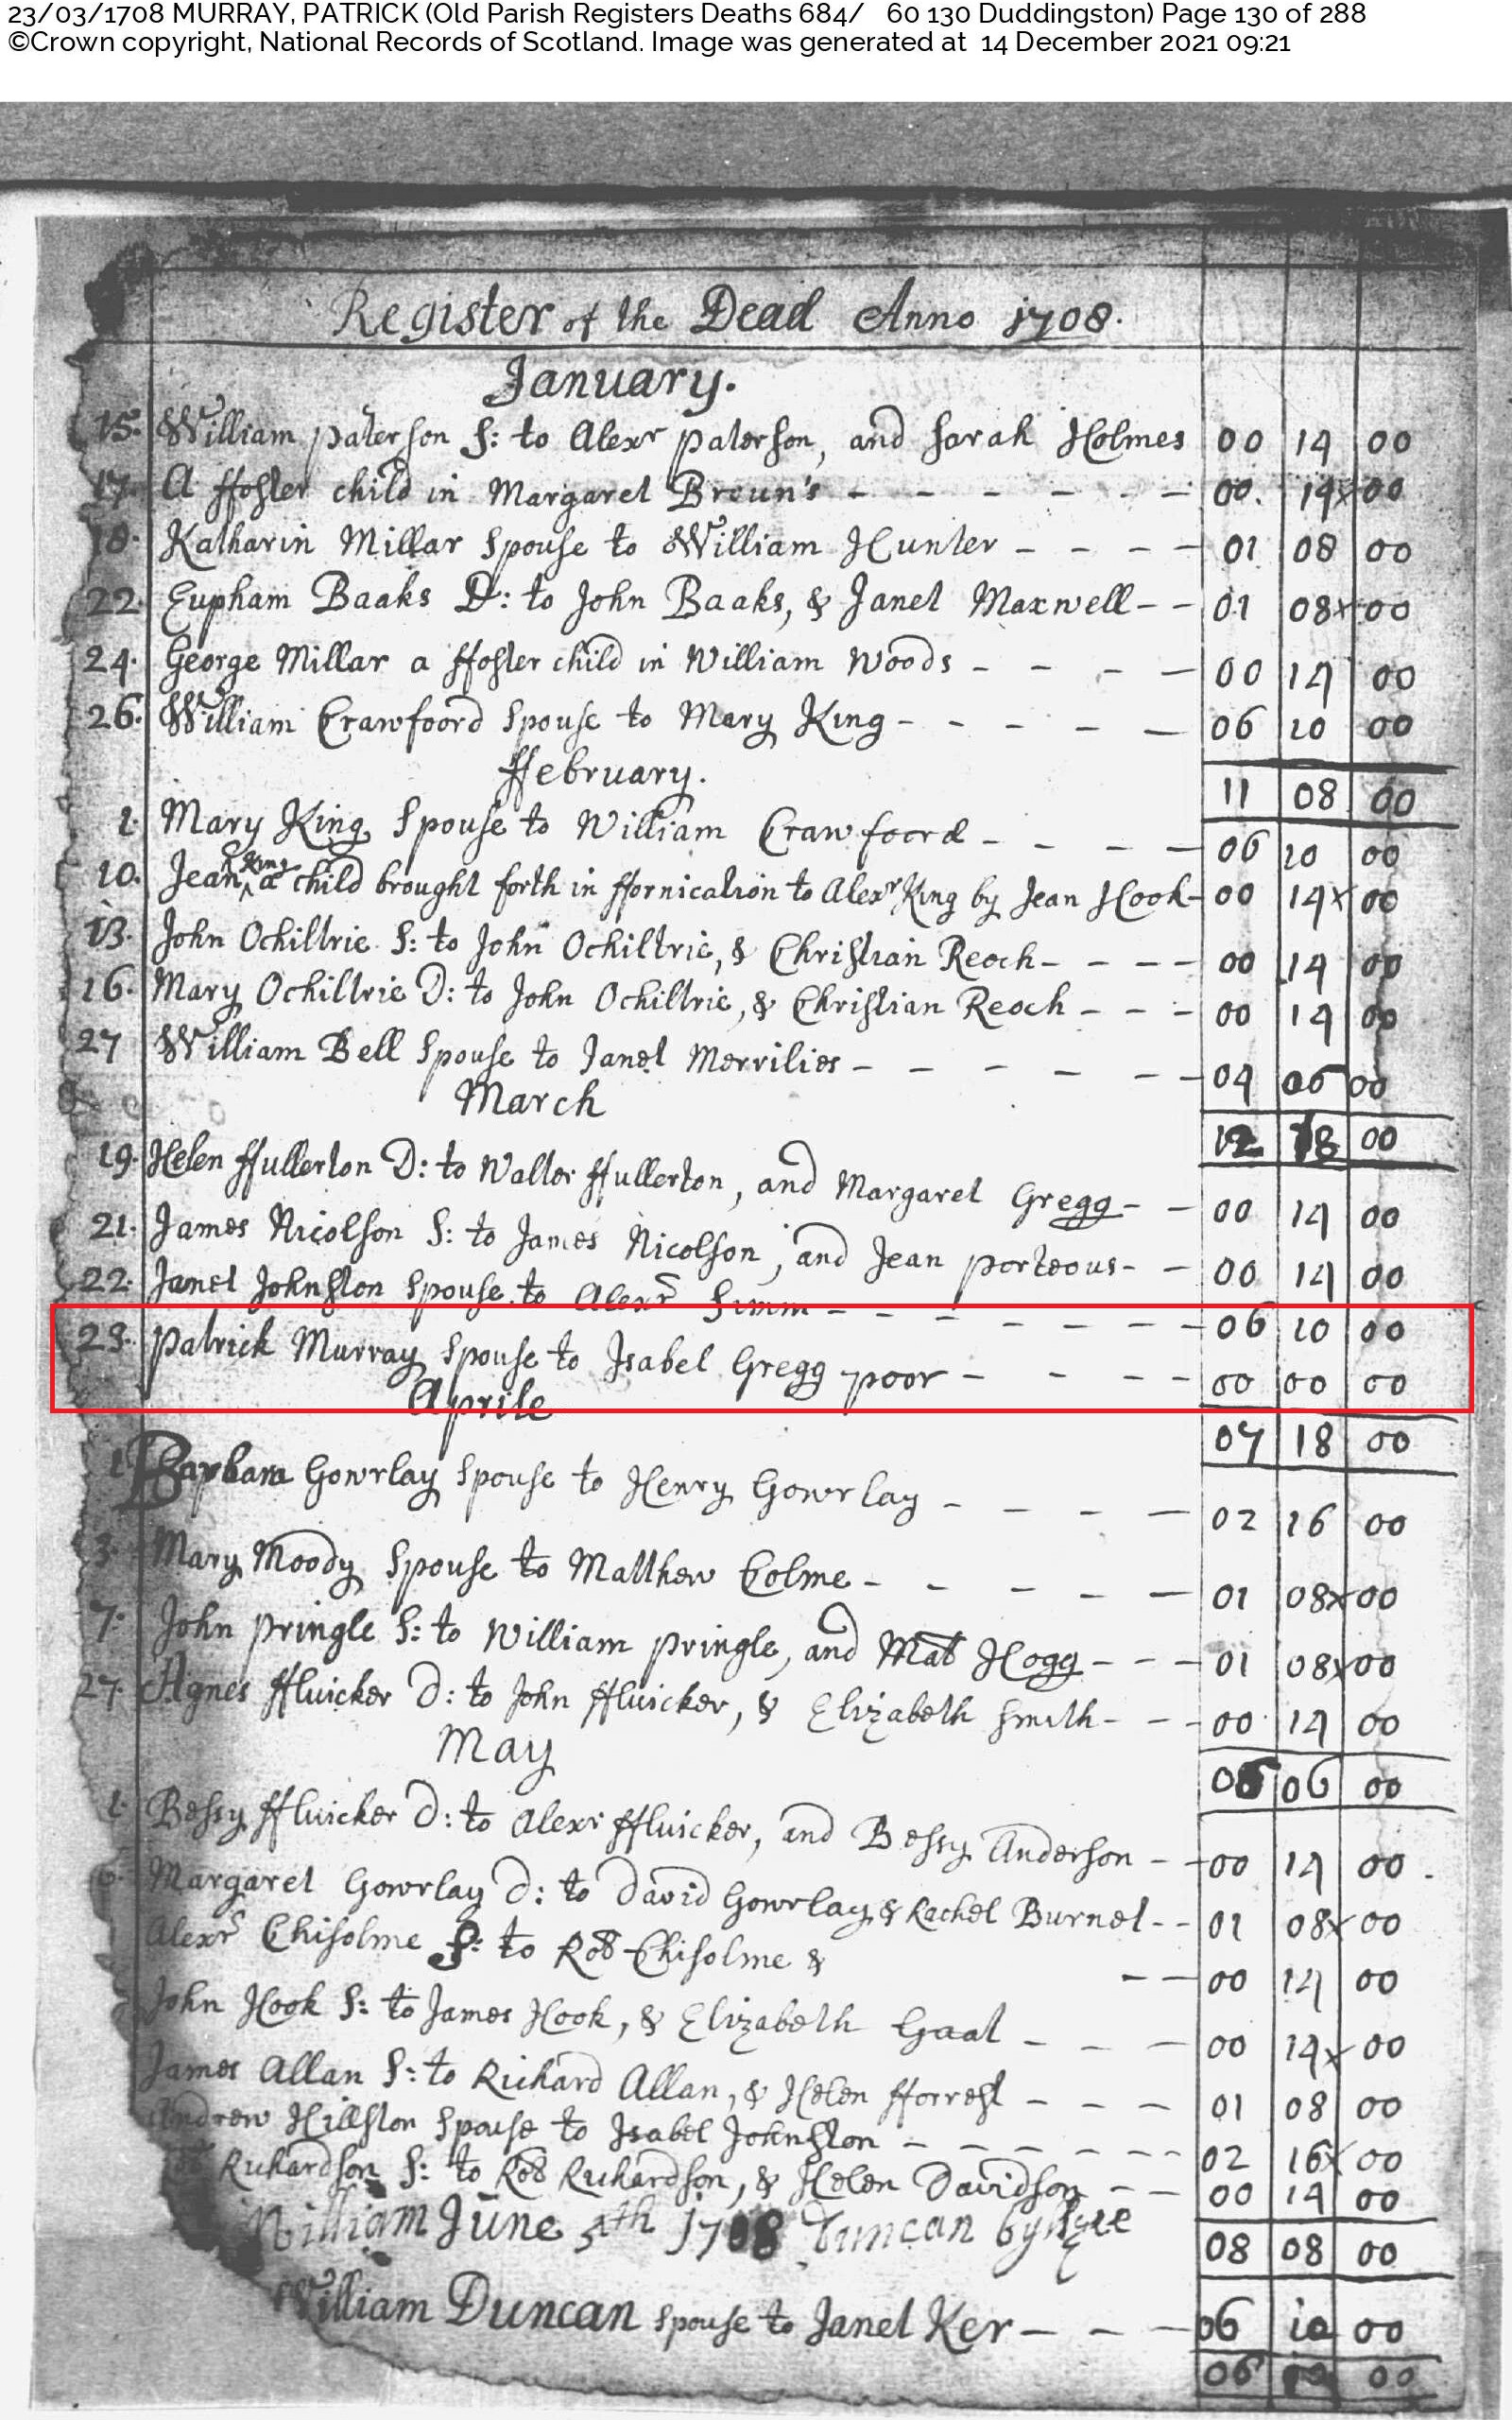 23/03/1708 MURRAY, PATRICK (Old Parish Registers Deaths 684/ 60 130 Duddingston) Page 130 of 288
©Crown copyright, National Records of Scotland. Image was generated at 14 December 2021 09:21
Register of the Dead Anno 1708.
January.
15. William paterson S: to Alexr paterson, and Sarah Holmes 00 14 00
17. A ffoster child in Margaret Broun's - - - - - - 00. 14x00
18. Katharin Millar Spouse to William Hunter - - - - 01 08 00
22. Eupham Baaks D: to John Baaks, & Janet Maxwell - - 01 08x00
24. George Millar a ffoster child in William Woods - - - - 00 14 00
26. William Crawfoord Spouse to Mary King - - - - - 06 10 00
ffebruary.
11 08 00
1. Mary King Spouse to William Crawfoord - - - - 06 10 00
10. Jean King a child brought forth in ffornication to Alexr King by Jean Hook - 00 14x00
13. John Ochiltrie S: to John Ochiltrie, & Christian Reoch - - - - 00 14 00
16. Mary Ochiltrie D: to John Ochiltrie, & Christian Reoch - - - 00 14 00
27 William Bell Spouse to Janet Merrilies - - - - - - 04 06 00
March
12 18 00
19. Helen ffullerton D: to Walter ffullerton, and Margaret Gregg - - 00 14 00
21. James Nicolson S: to James Nicolson, and Jean porteous - - 00 14 00
22. Janet Johnston Spouse to Alexr Simm - - - - - - - 06 10 00
23. patrick Murray Spouse to Isabel Gregg poor - - - - 00 00 00
Aprile
07 18 00
1 Barbara Gowrlay Spouse to Henry Gowrlay - - - - 02 16 00
3. Mary Moody Spouse to Matthew Colme - - - - - 01 08x00
7. John pringle S: to William pringle, and Mat Hogg - - - 01 08x00
27. Agnes ffluicker D: to John ffluicker, & Elizabeth Smith - - - 00 14 00
May
06 06 00
1. Bessy ffluicker D: to Alexr ffluicker, and Bessy Anderson - - 00 14 00
6. Margaret Gowrlay D: to David Gowrlay & Rachel Burnet - - 01 08x00
Alexr Chisolme S: to Rob Chisolme & - - 00 14 00
John Hook S: to James Hook, & Elizabeth Gaal - - - 00 14x00
James Allan S: to Richard Allan, & Helen fforrest - - - 01 08 00
Andrew Hillston Spouse to Isabel Johnston - - - - - - 02 16x00
Richardson S: to Rob Richardson, & Helen Davidson - - 00 14 00
William June 5th 1708 Duncan
08 08 00
William Duncan Spouse to Janet Ker - - - 06 10 00
06 10 00